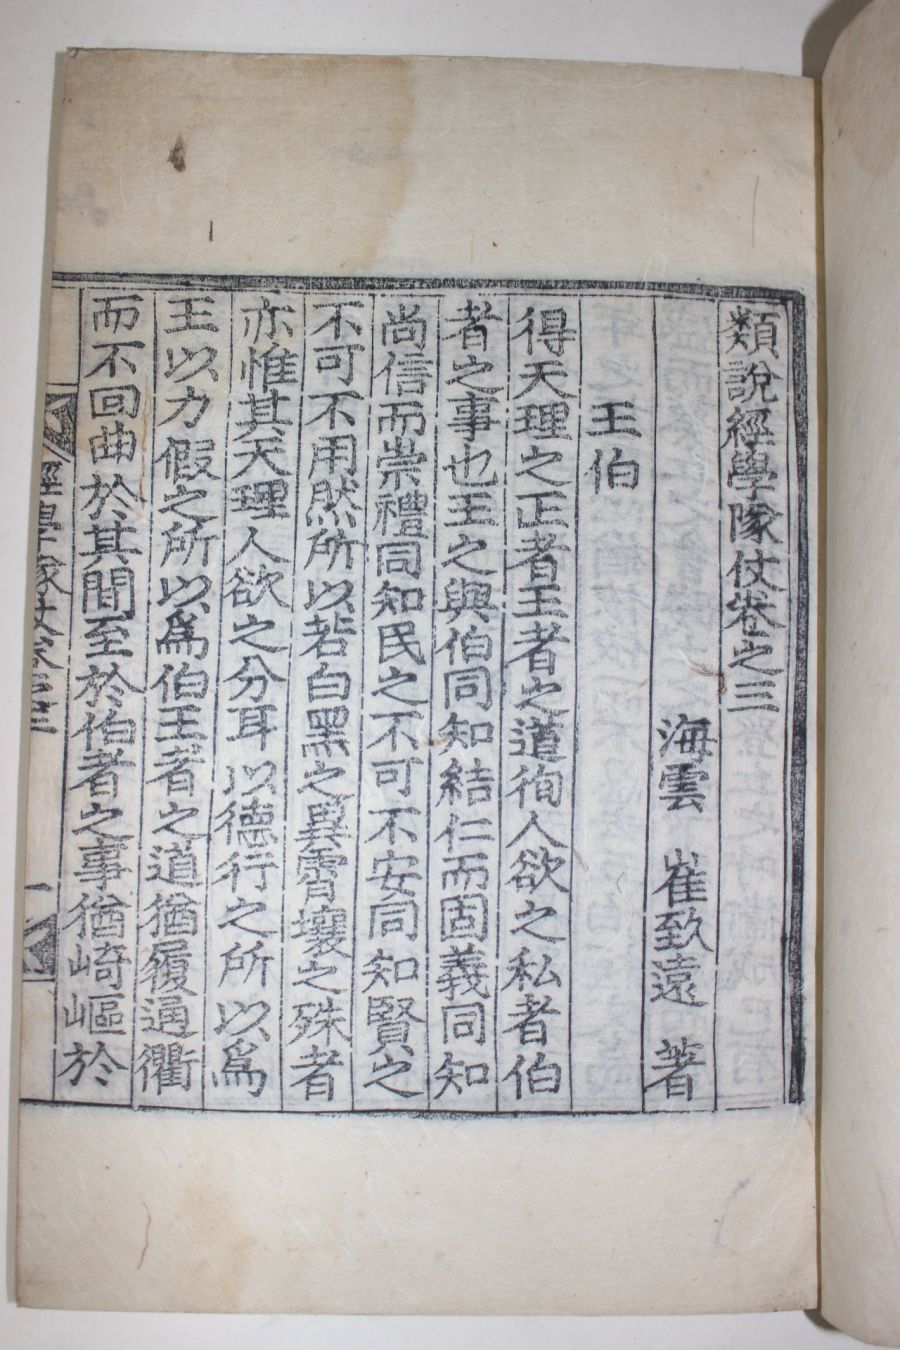 類說經學隊仗卷之三
海雲 崔致遠 著
王伯
得天理之正者王者之道徇人欲之私者伯
者之事也王之與伯同知結仁而固義同知
尚信而崇禮同知民之不可不安同知賢之
不可不用然所以若白黑之異霄壤之殊者
亦惟其天理人欲之分耳以德行之所以爲
王以力假之所以爲伯王者之道猶履通衢
而不回曲於其間至於伯者之事猶崎嶇於
經學隊仗卷三
一